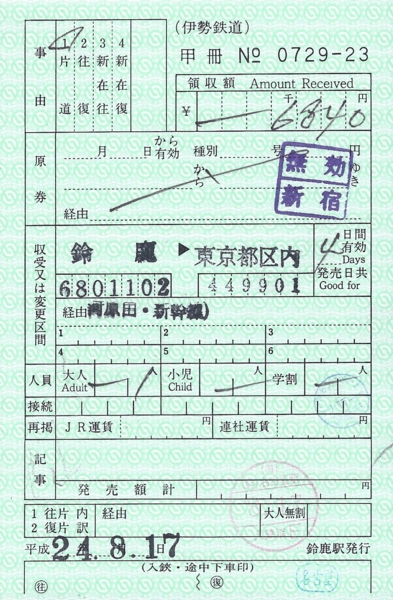 (伊勢鉄道)
甲冊 № 0729-23
事由
1 片道
2 往復
3 新在往
4 新在復
領収額 Amount Received
¥ 千 円
6840
原券
月 日から有効 種別 号
から ゆき
経由
無効
新宿
収受又は変更区間
鈴鹿 ▶ 東京都区内
6801102 449901
4 日間有効 Days
発売日共 Good for
経由 河原田・新幹線)
1 2 3
4 5 6
人員 大人 Adult 1 人 小児 Child 人 学割 人
接続
再掲 JR運賃 円 連社運賃 円
記事
発売額計 円
1 往片内 経由 大人無割
2 復片訳 円
平成 24.8.17 鈴鹿駅発行
(入鋏・途中下車印)
往 復